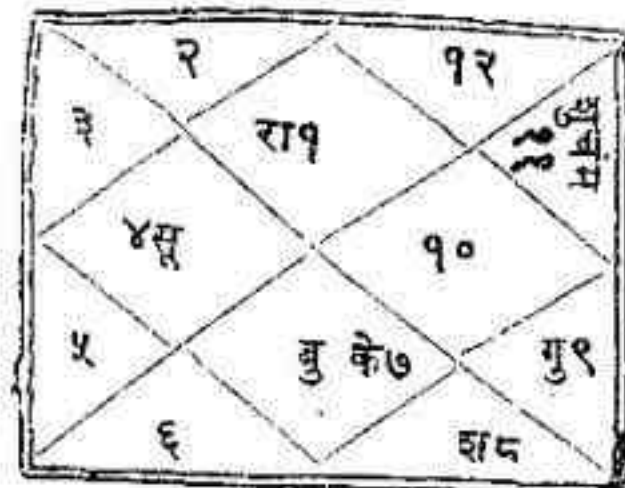 २
१२
३
रा१
शु चं मं
११
४सू
१०
५
बु के७
गु९
६
श८